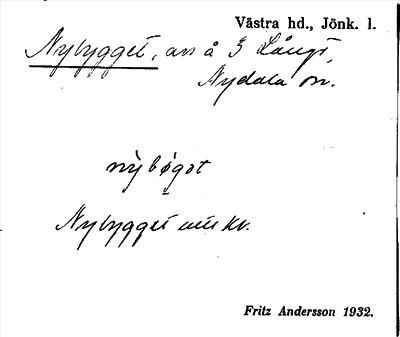 Västra hd., Jönk. l.
Nybygget, avs å 3 Långö,
Nydala sn.
nỳbø̣̀gət
Nybygget
Fritz Andersson 1932.